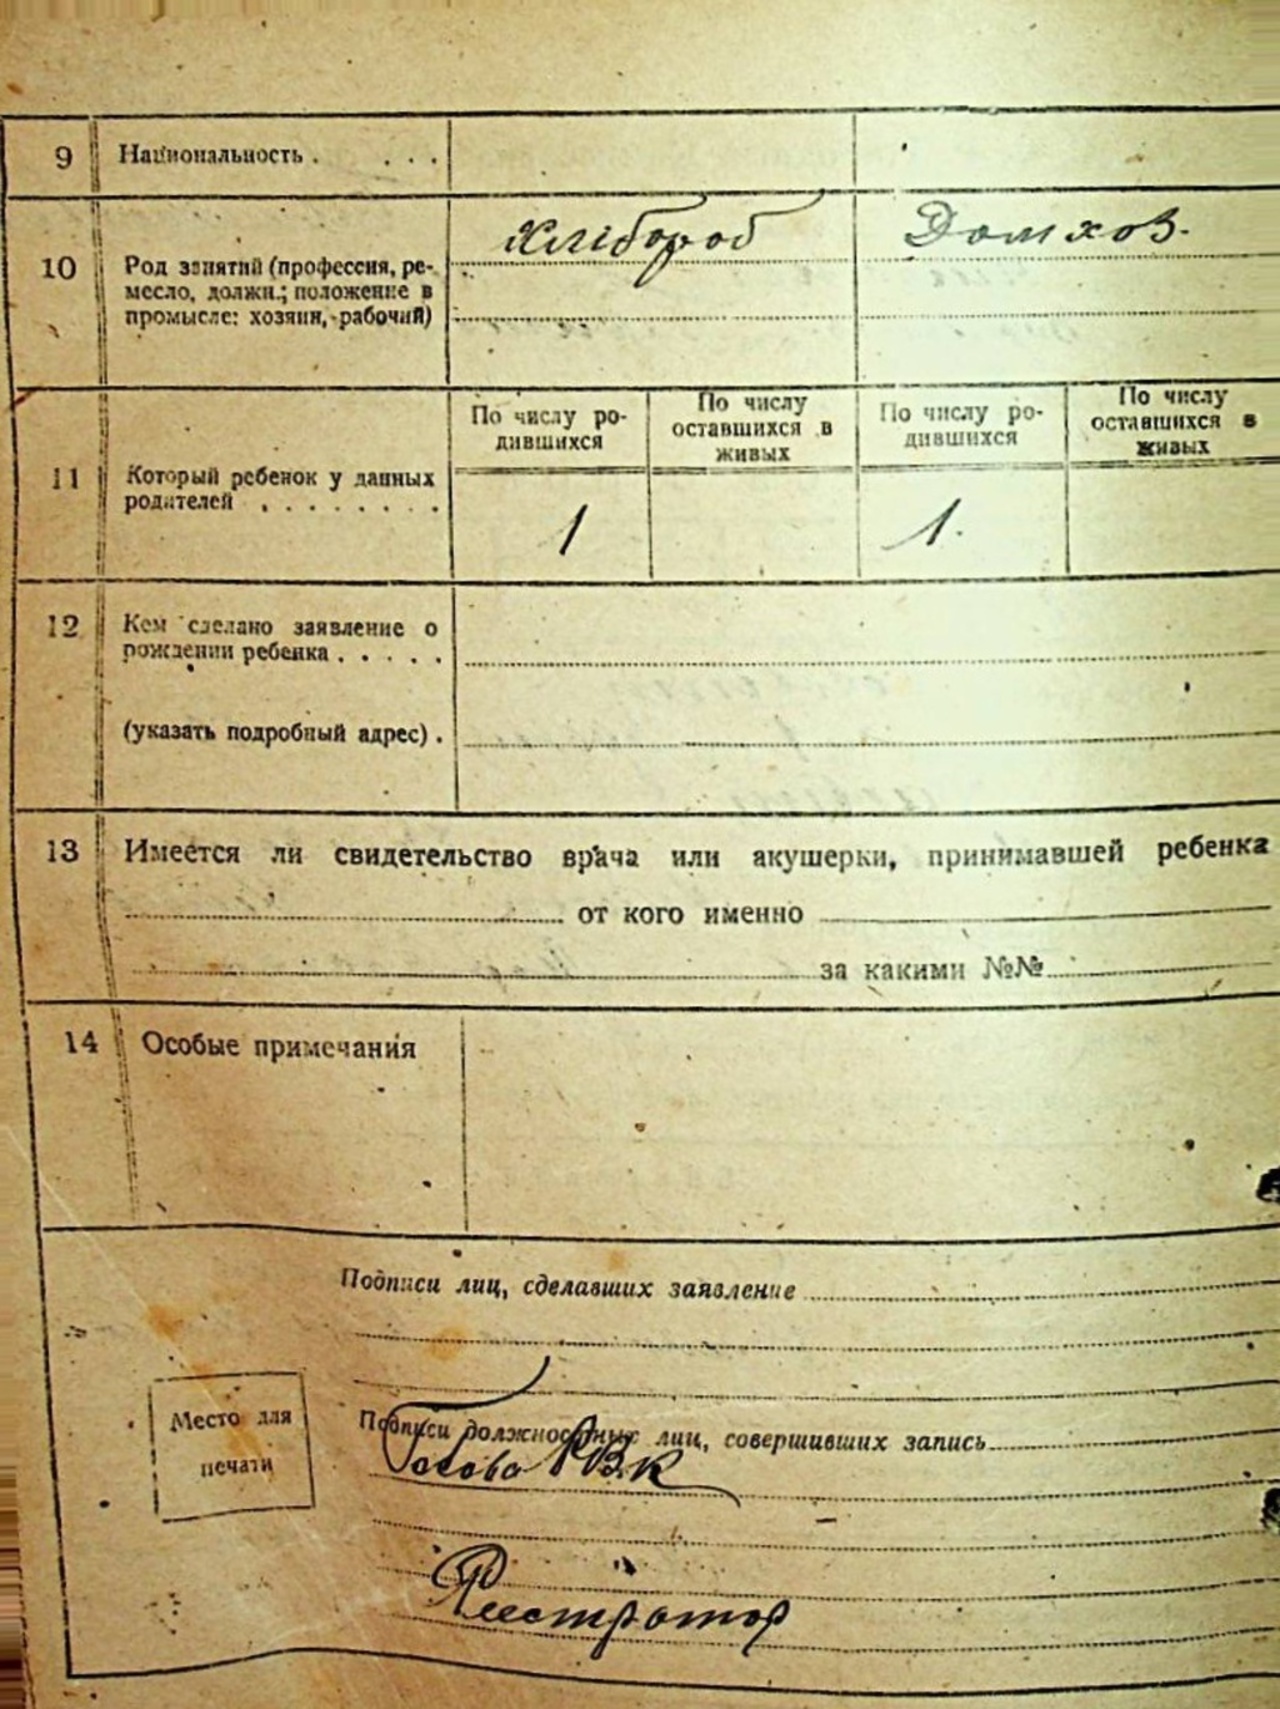 9 Национальность . . . .
10 Род занятий (профессия, ре-
месло, должн.; положение в
промысле: хозяин, рабочий)
Хлібороб Домхоз.
11 Который ребенок у данных
родителей . . . . . . . .
По числу ро-
дившихся
По числу
оставшихся в
живых
По числу ро-
дившихся
По числу
оставшихся в
живых
1 1.
12 Кем сделано заявление о
рождении ребенка . . . . .
(указать подробный адрес) .
13 Имеется ли свидетельство врача или акушерки, принимавшей ребенка
от кого именно
за какими №№
14 Особые примечания
Подписи лиц, сделавших заявление
Место для
печати
Подписи должностных лиц, совершивших запись
Голова РВК
Реєстратор